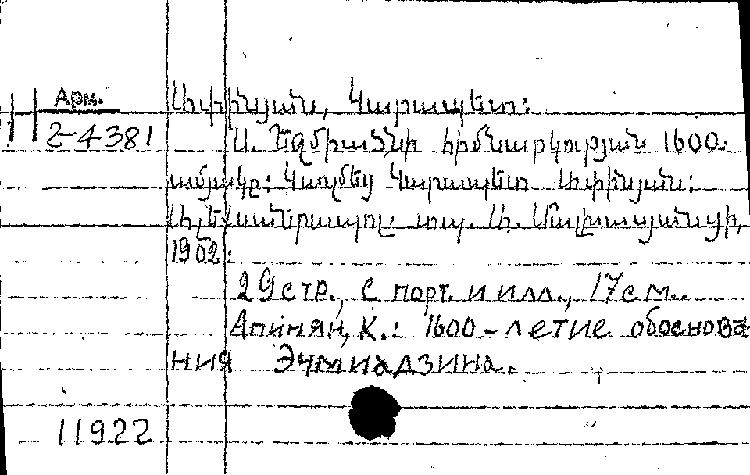 Арм.
2-4381
Ափինյան, Կարապետ:
Ս. Էջմիածնի հիմնարկության 1600-
ամյակը: Կազմեց Կարապետ Ափինյան:
Ալեքսանդրապոլ: տպ. Ա. Մալխասյանցի,
1902:
29 стр., с порт. и илл., 17 см.
Апинян, К.: 1600-летие обоснова
ния Эчмиадзина.
11922